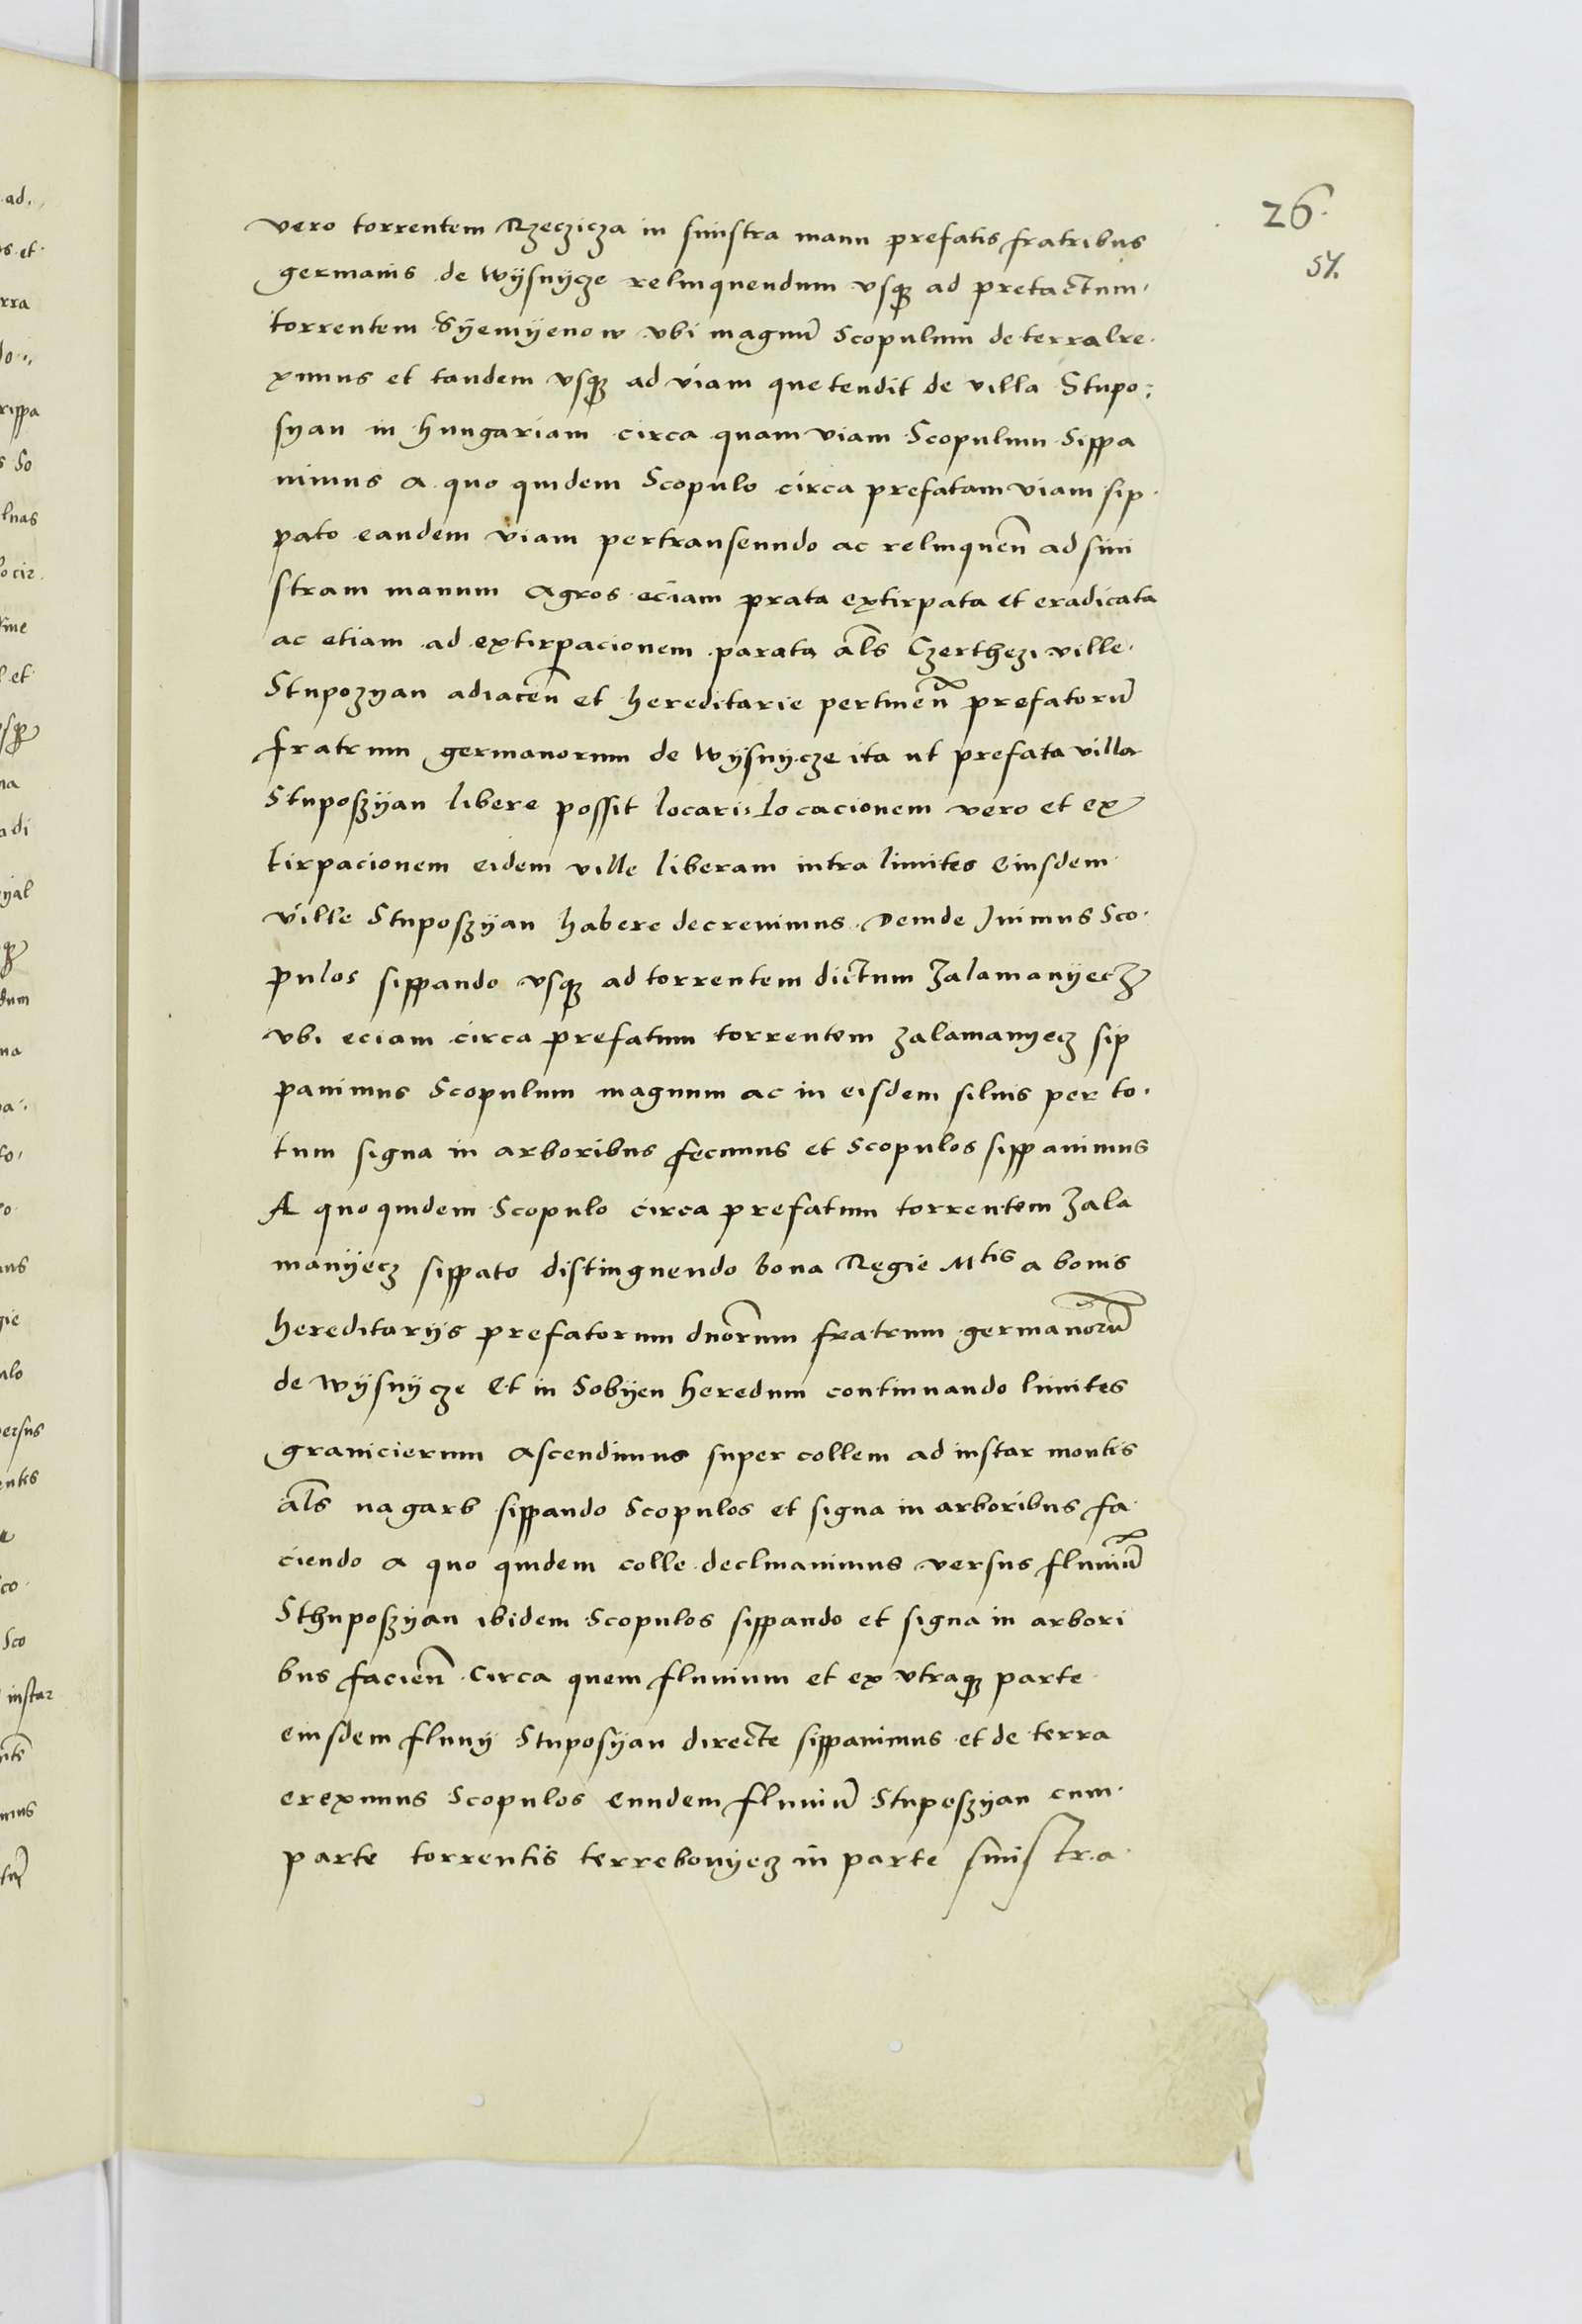 26.
57.
vero torrentem Rzeczicza in sinistra manu prefatis fratribus
germanis de Wÿsnÿcze relinquendum vsqȝ ad pretactum
torrentem Sÿemÿenow vbi magnū Scopulum de terra lre
ximus et tandem vsqȝ ad viam que tendit de villa Stupo:
syan in Hungariam circa quam viam Scopulum Sippa
uimus a quo quidem Scopulo circa prefatam viam sip
pato eandem viam pertranseundo ac relinquen̄ ad sini
stram manum Agros eciam prata extirpata et eradicata
ac etiam ad extirpacionem parata al̄s Czerthezi ville
Stupozyan adiacen̄ et hereditarie pertinen̄ prefatorū
fratrum germanorum de Wÿsnÿcze ita ut prefata villa
Stuposzÿan libere possit locari: Locacionem vero et ex
tirpacionem eidem ville liberam intra limites Eiusdem
ville Stuposzÿan habere decreuimus. Deinde Juimus Sco
pulos sippando vsqȝ ad torrentem dictum Zalamanÿecz
vbi eciam circa prefatum torrentem zalamanyecz sip
pauimus Scopulum magnum ac in eisdem siluis per to
tum signa in arboribus fecimus et Scopulos sippauimus
A quo quidem Scopulo circa prefatum torrentem Zala
manÿecz sippato distinguendo bona Regie Mtis a bonis
hereditarÿs prefatorum dnōrum fratrum germanorū
de Wÿsnÿcze Et in Sobÿen heredum continuando limites
granicierum Ascendimus super collem ad instar montis
al̄s na garb sippando Scopulos et signa in arboribus fa
ciendo a quo quidem colle declinauimus versus fluuiū
Sthuposzÿan ibidem Scopulos sippando et signa in arbori
bus facien̄ Circa quem fluuium et ex vtraqȝ parte
eiusdem fluuÿ Stuposÿan directe sippauimus et de terra
ereximus Scopulos Eundem fluuiū Stuposzÿan cum
parte torrentis terrebonyecz in parte sinistra